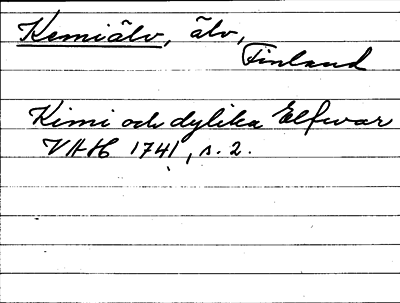 Kemiälv, älv,
Finland
Kimi och dylika Elfwar
VAH 1741, s. 2.